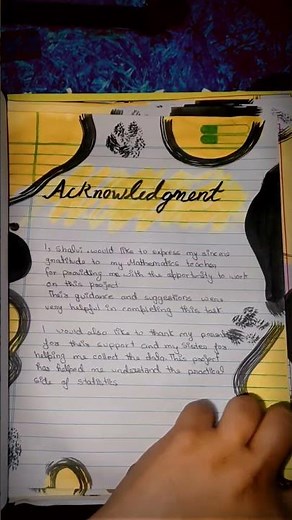 Acknowledgment
I, Shalvi, would like to express my sincere
gratitude to my Mathematics teacher
for providing me with the opportunity to work
on this project.
Their guidance and suggestions were
very helpful in completing this task
I would also like to thank my parents
for their support and my sister for
helping me collect the data. This project
has helped me understand the practical
side of statistics